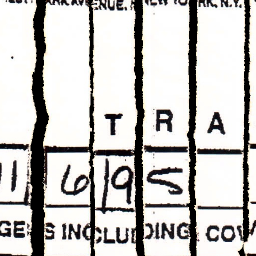 PARK AVENUE, NEW YORK, N.Y.
T R A
11 6 19 5
GES INCLUDING COV